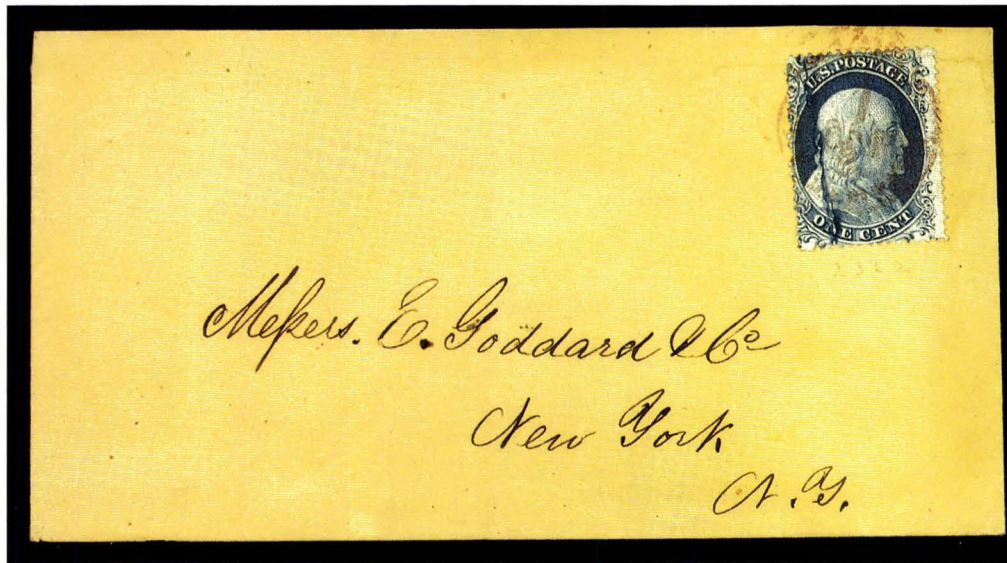 U.S. POSTAGE
ONE CENT
Messers. E. Goddard & Co
New York
N. Y.